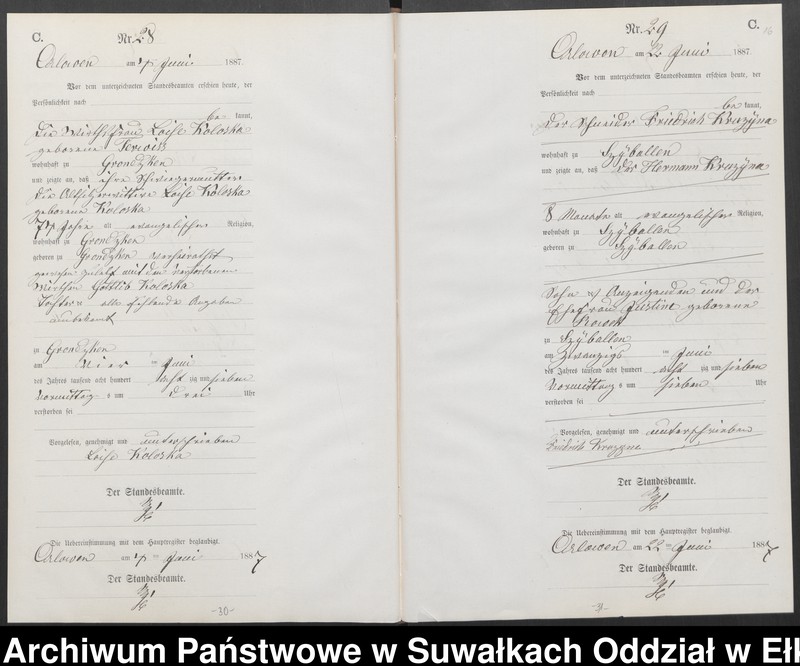 C.
Nr. 28
Orlowen am 4ten Juni 1887.
Vor dem unterzeichneten Standesbeamten erschien heute, der
Persönlichkeit nach
be kannt,
die Wirthsfrau Loise Koloska
geborene
wohnhaft zu Grondzken
und zeigte an, daß ihre Schwiegermutter
die Altsitzerwittwe Loise Koloska
geborene Koloska
74 Jahre alt evangelischer Religion,
wohnhaft zu Grondzken
geboren zu Grondzken verheirathet
gewesen zuletzt mit dem verstorbenen
Wirthen Gottlib Koloska
Tochter alle fehlende Angaben
unbekannt
zu Grondzken
am Vier ten Juni
des Jahres tausend acht hundert acht zig und sieben
Vormittags um drei Uhr
verstorben sei
Vorgelesen, genehmigt und unterschrieben
Loise Koloska
Der Standesbeamte.
Die Uebereinstimmung mit dem Hauptregister beglaubigt.
Orlowen am 4ten Juni 1887
Der Standesbeamte.
-30-
C.
Nr. 29
Orlowen am 22 Juni 1887
Vor dem unterzeichneten Standesbeamten erschien heute, der
Persönlichkeit nach
be kannt,
der Schneider Friedrich Kruzÿna
wohnhaft zu Szÿballen
und zeigte an, daß der Hermann Kruzÿna
8 Monate alt evangelischer Religion,
wohnhaft zu Szÿballen
geboren zu Szÿballen
Sohn des Anzeigenden und der
Ehefrau Justine geborene
zu Szÿballen
am zwanzigs ten Juni
des Jahres tausend acht hundert acht zig und sieben
Vormittags um sieben Uhr
verstorben sei
Vorgelesen, genehmigt und unterschrieben
Friedrich
Der Standesbeamte.
Die Uebereinstimmung mit dem Hauptregister beglaubigt.
Orlowen am 22ten Juni 1887
Der Standesbeamte.
Archiwum Państwowe w Suwałkach Oddział w Ełk